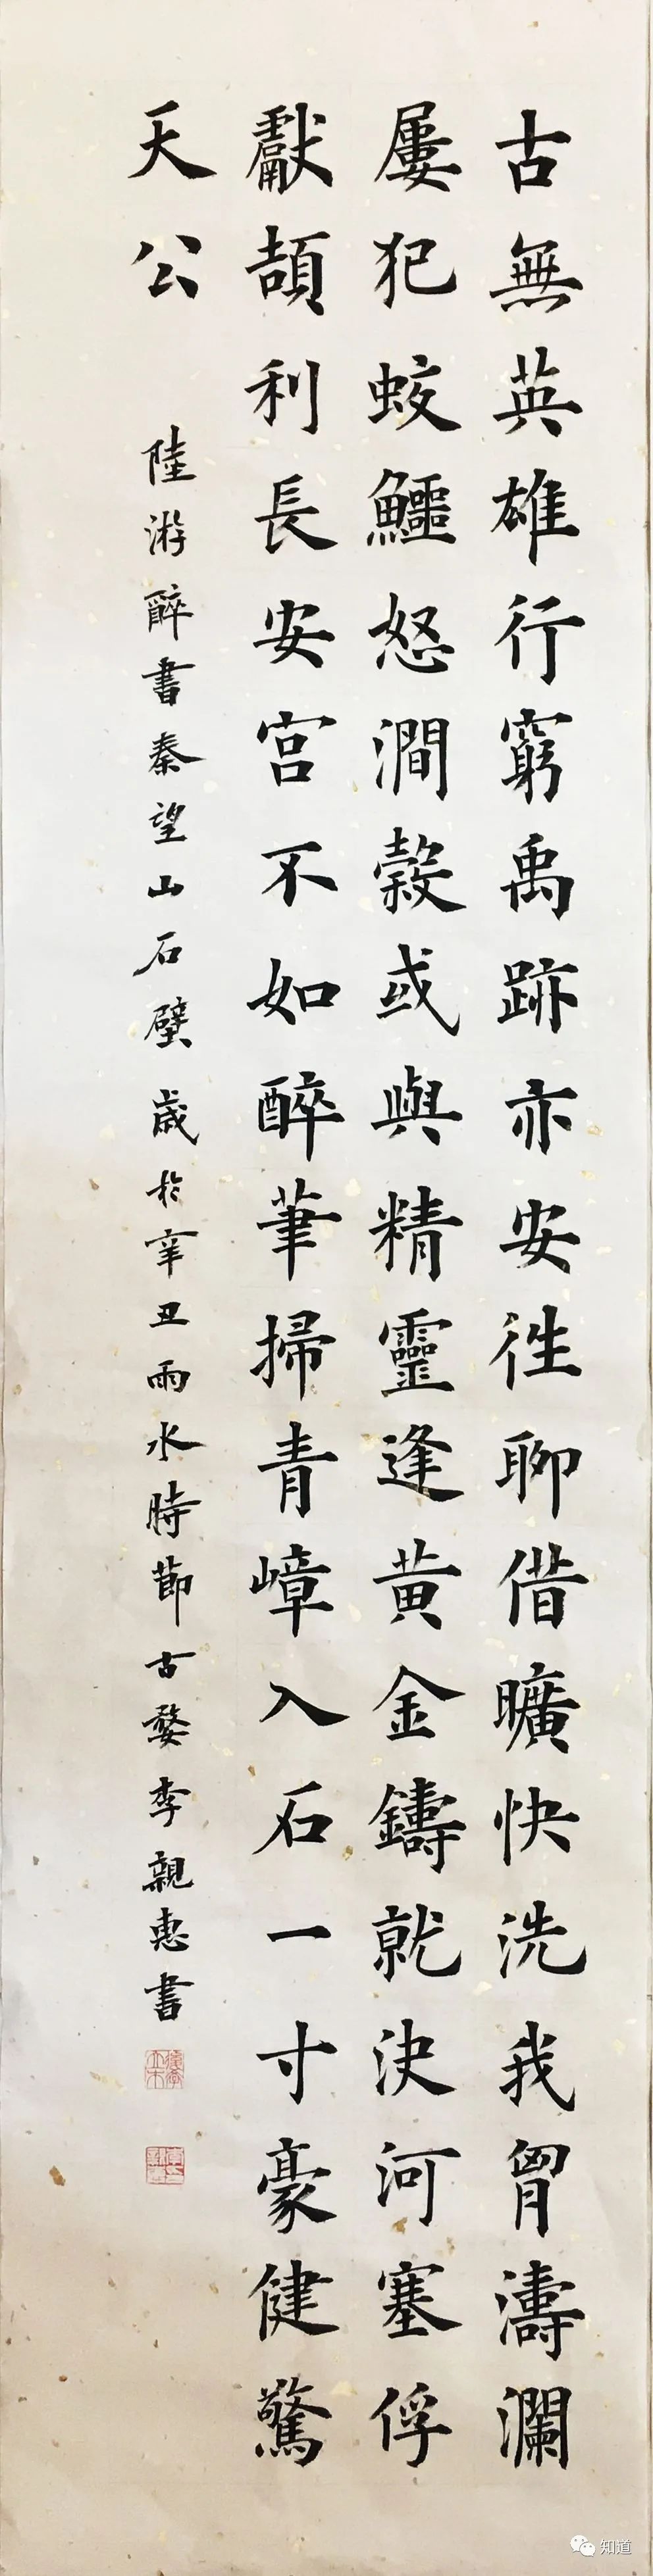 古無英雄行窮禹跡亦安徃聊借曠快洗我胷濤瀾
屢犯蛟鱷怒澗榖或與精靈逢黃金鑄就決河塞俘
獻頡利長安宮不如醉筆掃青嶂入石一寸豪健驚
天公
陸游醉書秦望山石壁歲於辛丑雨水時節古婺李親惠書
知道